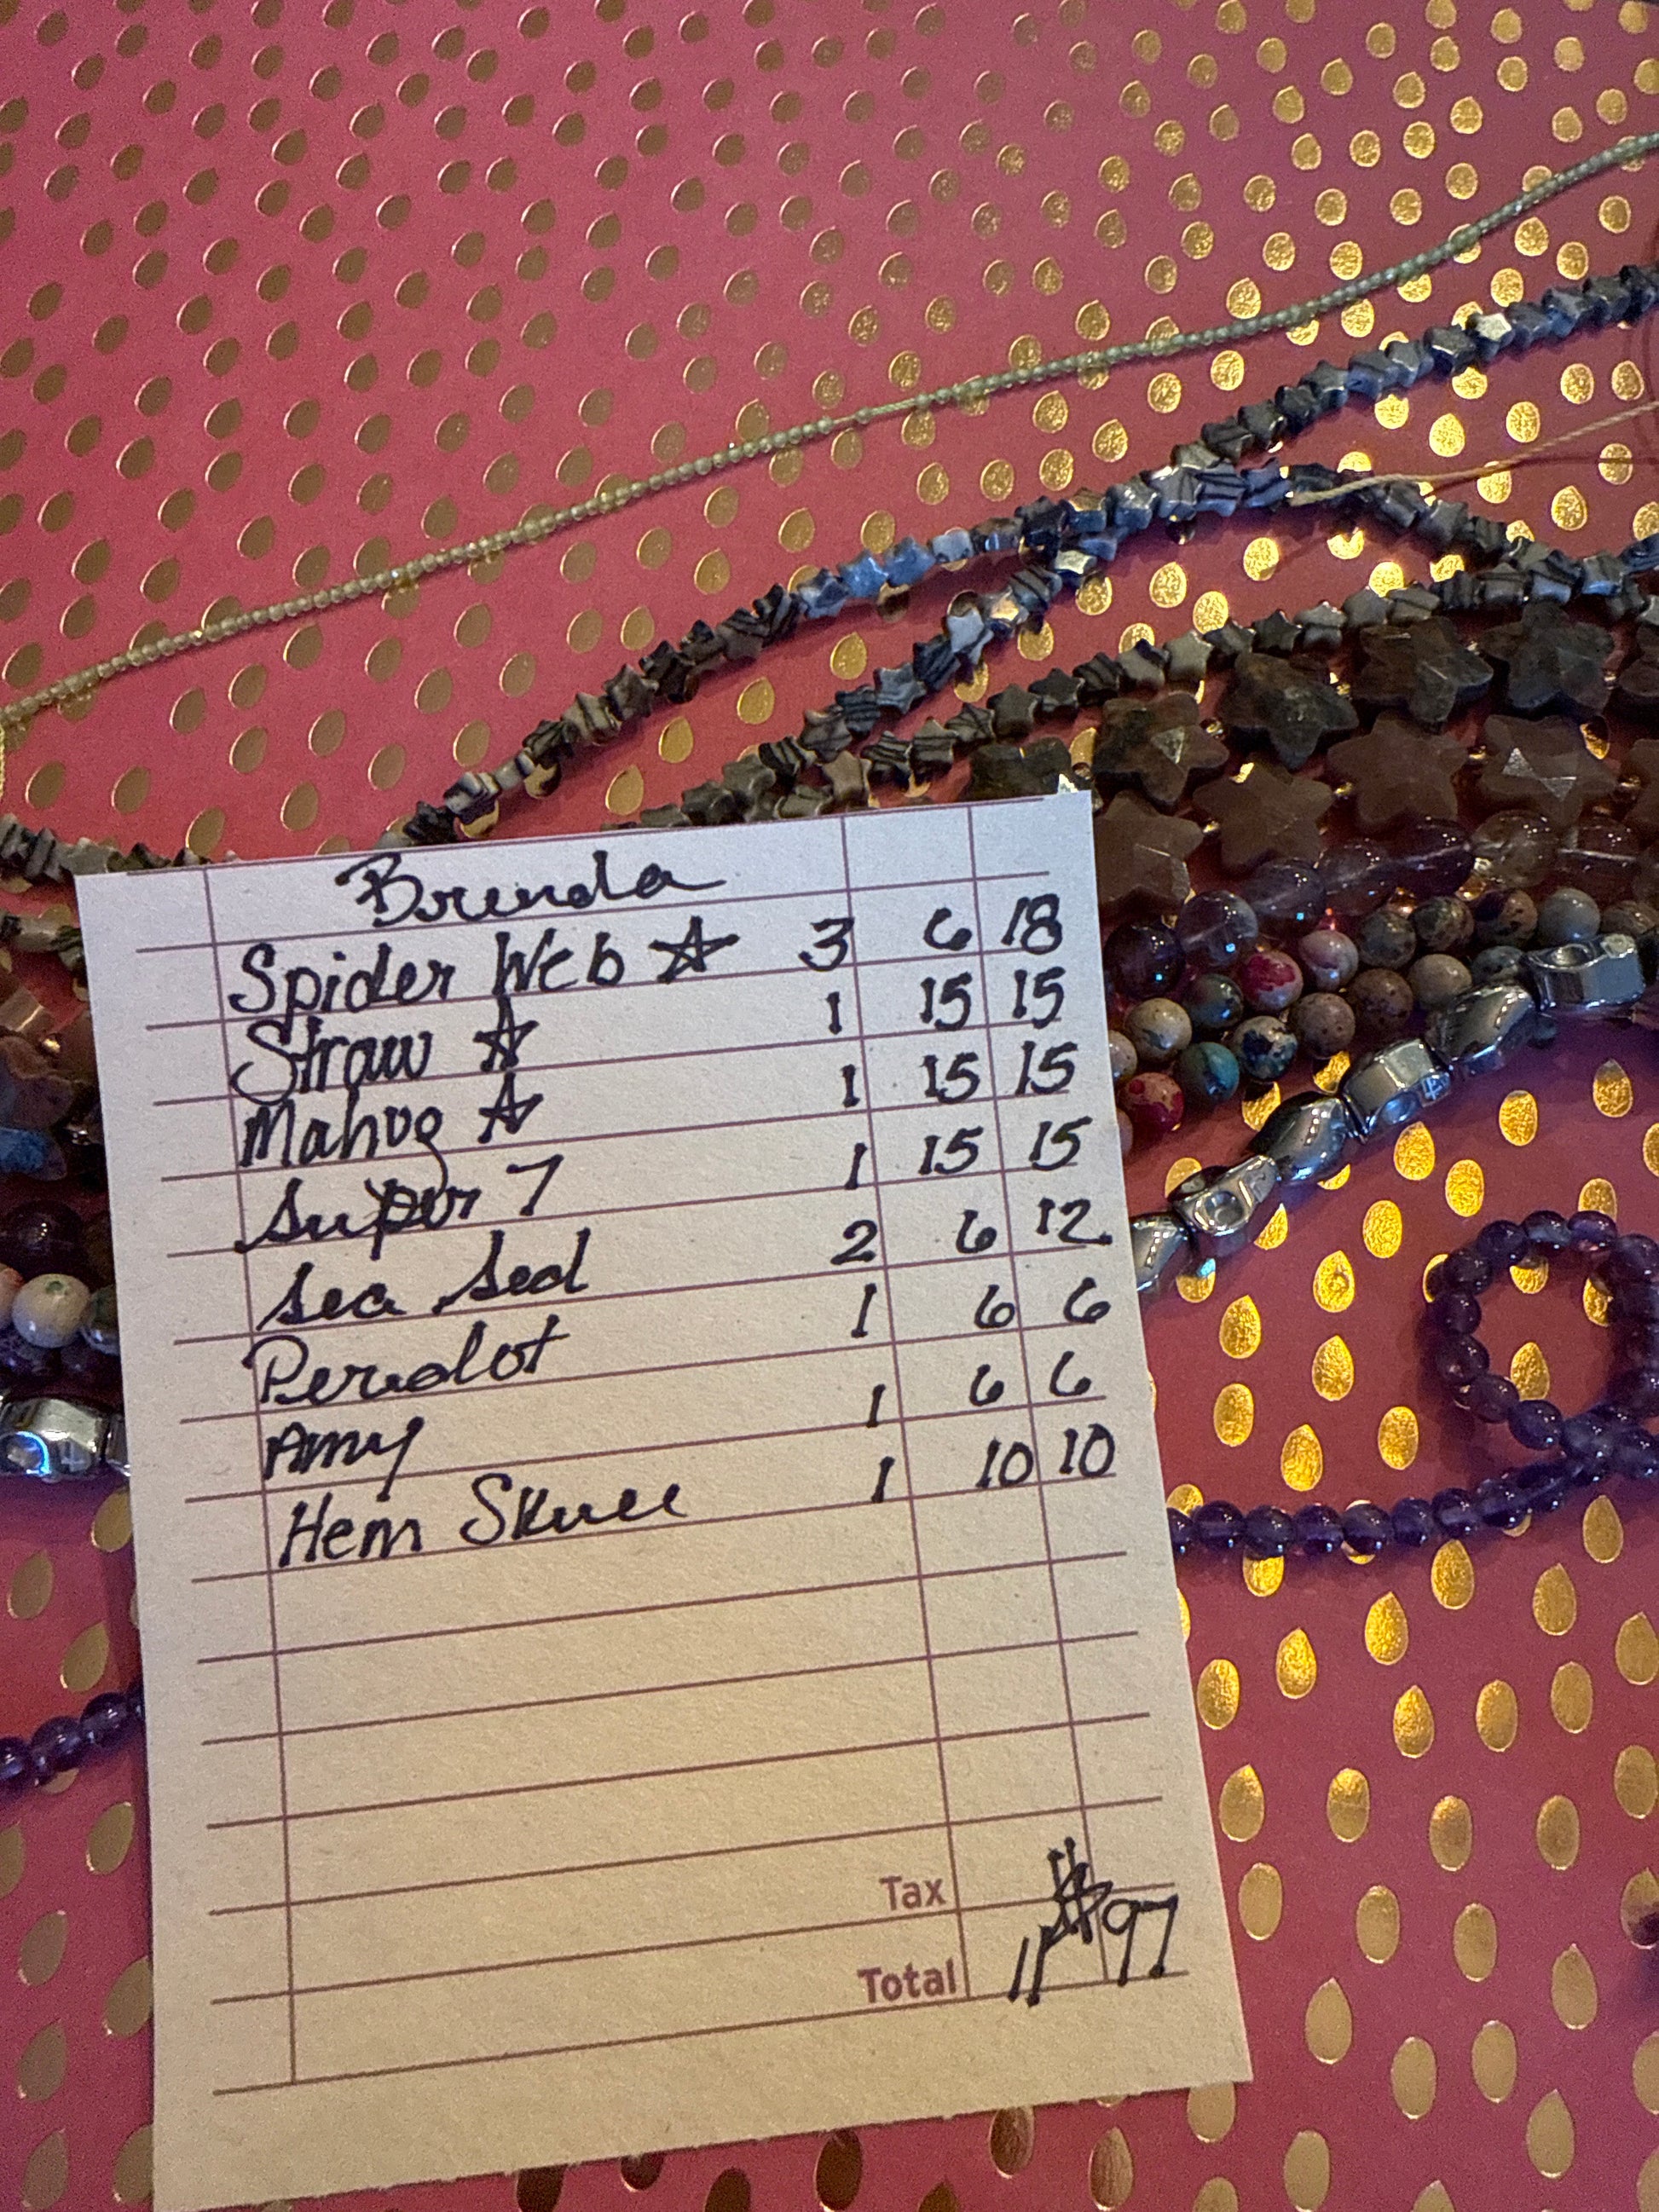 Brenda
Spider Web ☆ 3 6 18
Straw ☆ 1 15 15
Mahog ☆ 1 15 15
Super 7 1 15 15
Sea Sed 2 6 12
Peridot 1 6 6
Amy 1 6 6
Hem Skull 1 10 10
Tax
Total $97